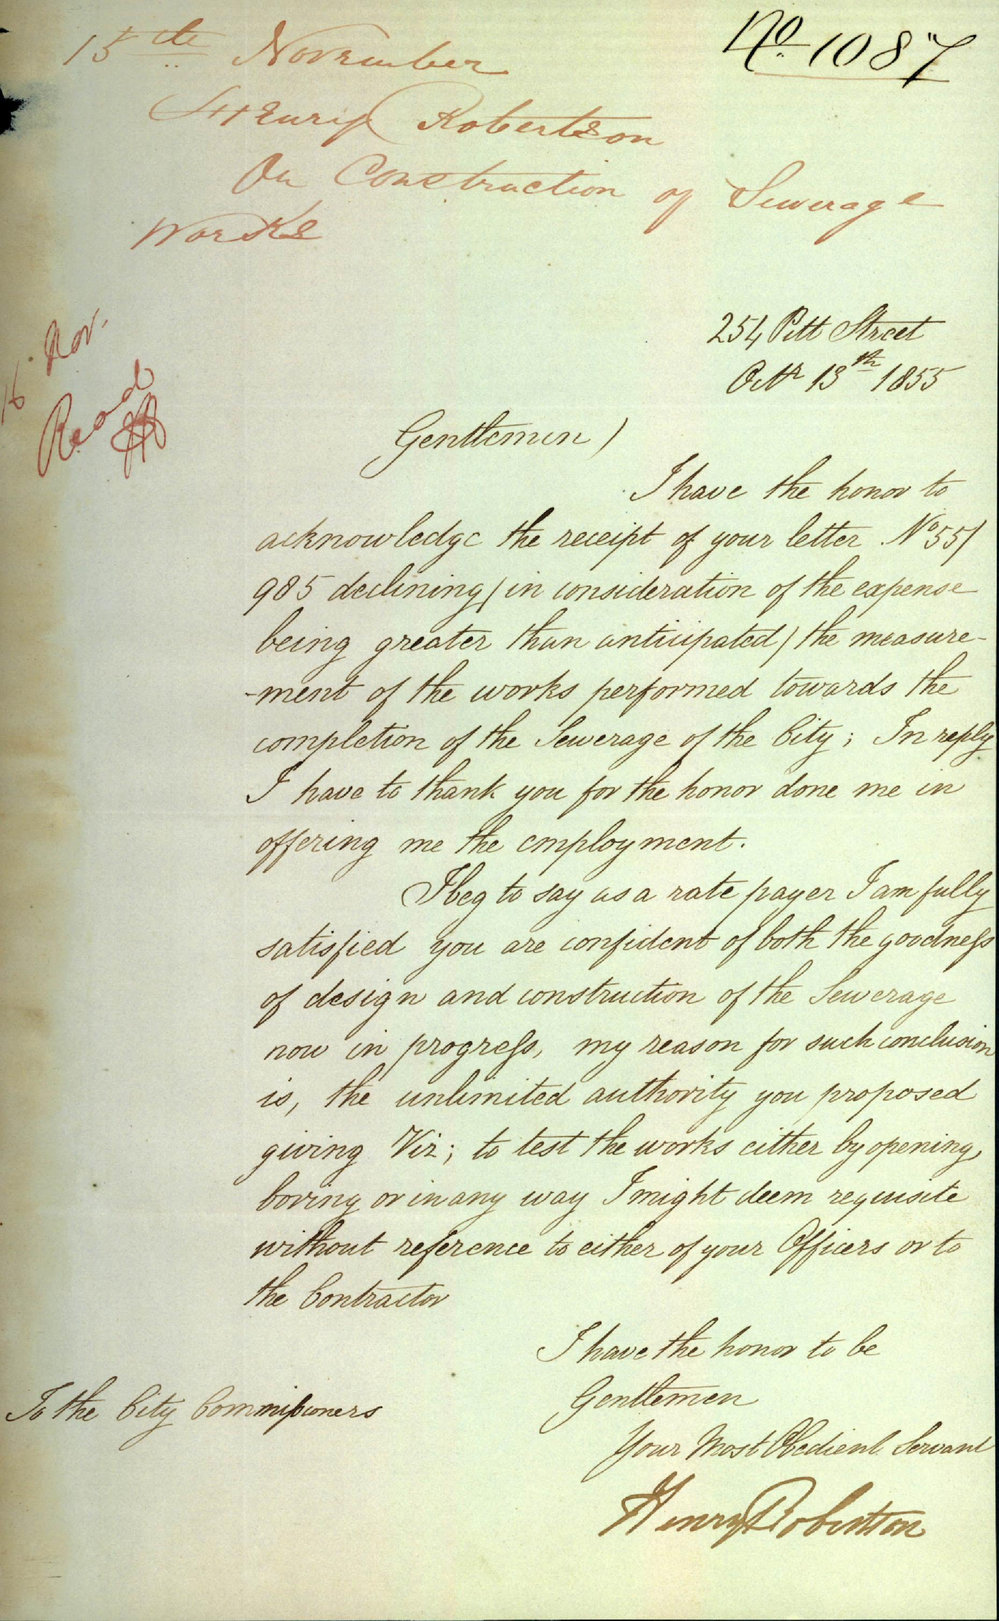 No. 1087
15th November
Henry Robertson
On Construction of Sewerage
Works
16 Nov.
Read
254 Pitt Street
Octr 13th 1855
Gentlemen)
I have the honor to
acknowledge the receipt of your letter No 55/
985 declining (in consideration of the expense
being greater than anticipated) the measure-
-ment of the works performed towards the
completion of the Sewerage of the City; In reply
I have to thank you for the honor done me in
offering me the employment.
I beg to say as a rate payer I am fully
satisfied you are confident of both the goodness
of design and construction of the Sewerage
now in progress, my reason for such conclusion
is, the unlimited authority you proposed
giving Viz; to test the works either by opening,
boring or in any way I might deem requisite
without reference to either of your Officers or to
the Contractor
I have the honor to be
Gentlemen
Your Most Obedient Servant
Henry Robertson
To the City Commissioners